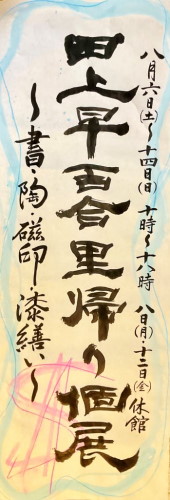 八月六日(土)〜十四日(日) 十時〜十八時 八日(月)・十二日(金)休館
田上早百合里帰り個展
〜書・陶・磁印・漆繕い〜